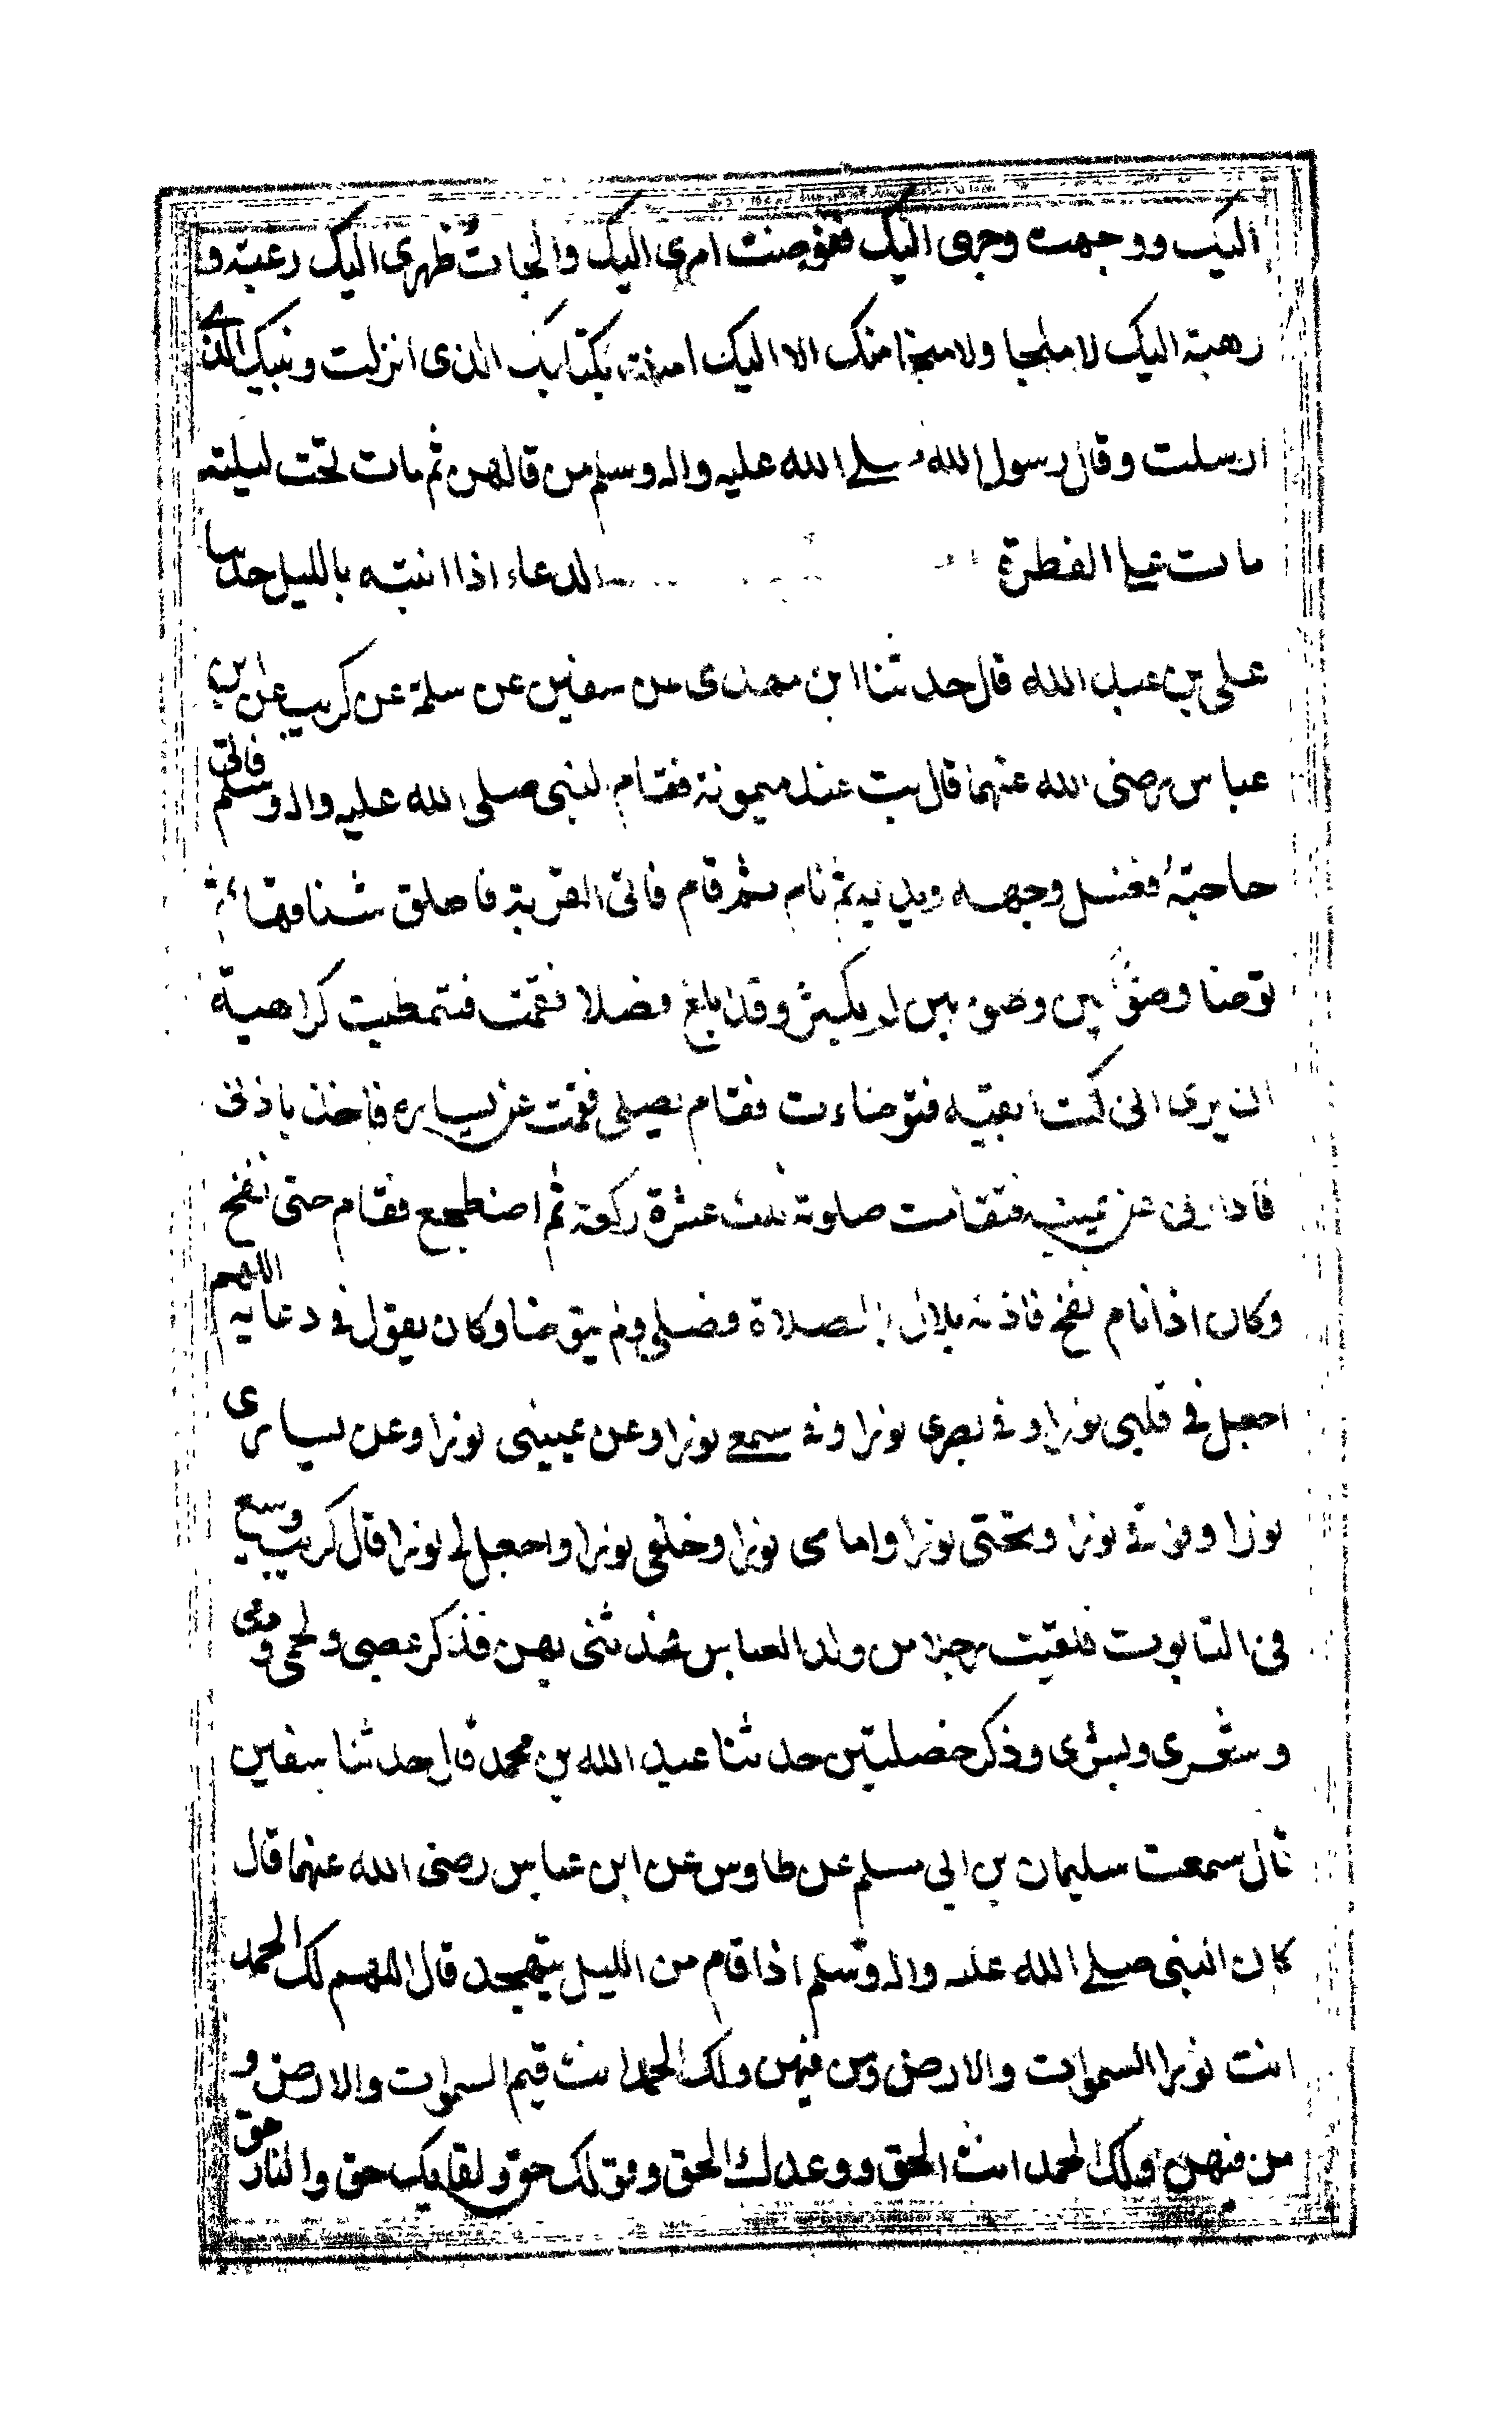 اليك ووجهت وجهى اليك فوضت امرى اليك والجات ظهرى اليك رغبة و
رهبة اليك لا ملجا ولا منجا منك الا اليك امنت بكتابك الذى انزلت ونبيك الذى
ارسلت وقال رسول الله صلى الله عليه واله وسلم من قالهن ثم مات تحت ليلته
مات على الفطرة الدعاء اذا انتبه بالليل حدثنا
على بن عبد الله قال حدثنا ابن مهدى عن سفين عن سلمة عن كريب عن ابن
عباس رضى الله عنهما قال بت عند ميمونة فقام النبى صلى الله عليه واله وسلم فاتى
حاجته فغسل وجهه ويديه ثم نام ثم قام فاتى القربة فاطلق شناقها ثم
توضا وضوء بين وضوءين لم يكثر وقد ابلغ فصلا فقمت فتمطيت كراهية
ان يرى انى كنت ابقيه فتوضاءت فقام يصلى فقمت عن يساره فاخذ باذنى
فادارنى عن يمينه فتقامت صلوته ثلث عشرة ركعة ثم اضطجع فقام حتى نفخ
وكان اذا نام نفخ فاذنه بلال بالصلاة فصلى ولم يتوضا وكان يقول فى دعايه اللهم
اجعل فى قلبى نورا وفى بصرى نورا وفى سمعى نورا وعن يمينى نورا وعن يسارى
نورا وفوقى نورا وتحتى نورا وامامى نورا وخلفى نورا واجعل لى نورا قال كريب وسبع
فى التابوت فلقيت رجلا من ولد العباس فحدثنى بهن فذكر عصبى ولحمى ودمى
وشعرى وبشرى وذكر خصلتين حدثنا عبد الله بن محمد قال حدثنا سفين
قال سمعت سليمان بن ابى مسلم عن طاوس عن ابن عباس رضى الله عنهما قال
كان النبى صلى الله عليه واله وسلم اذا قام من الليل يتهجد قال اللهم لك الحمد
انت نور السموات والارض ومن فيهن ولك الحمد انت قيم السموات والارض و
من فيهن ولك الحمد انت الحق ووعدك الحق وقولك حق ولقايك حق والنار حق